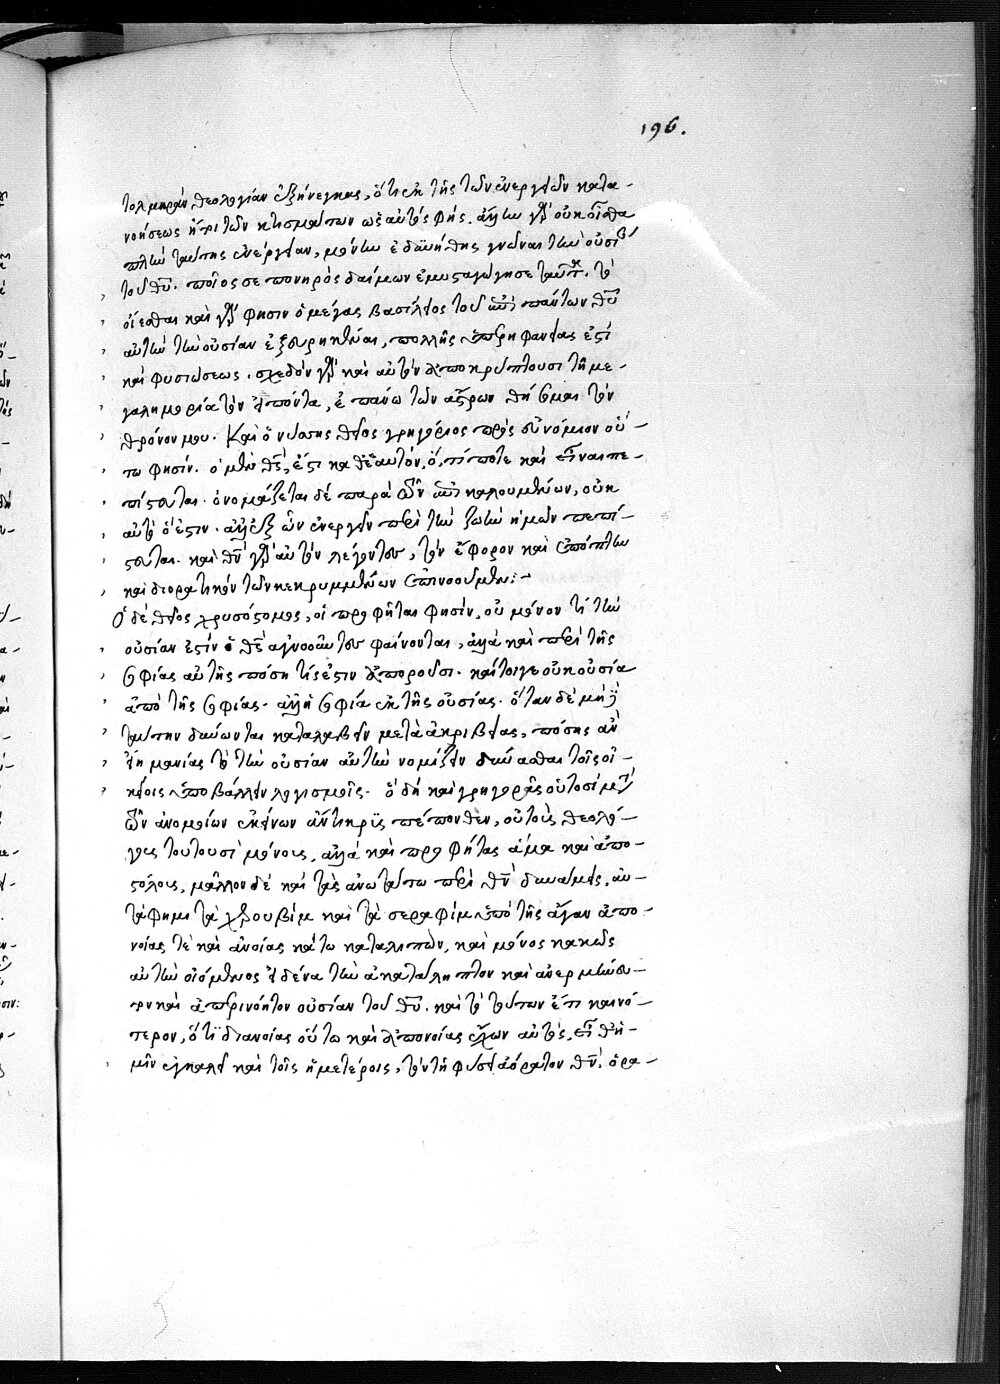 196.
τολμηρὰν θεολογίαν ἐξήνεγκας, ὅτι ἐκ τῆς τῶν ἐνεργειῶν κατα-
νοήσεως ἤτοι τῶν κτισμάτων ὡς αὐτὸς φῂς. ἀλλὰ γὰρ οὐκ οἶσθα
πλὴν ταύτης ἐνέργειαν, μόνην ἐδυνήθης γνῶναι τὴν οὐσίαν
τοῦ θεοῦ. ποῖος σε πονηρὸς δαίμων ἐμυσταγώγησε ταῦτα. τὸ
οἴεσθαι καὶ γάρ φησιν ὁ μέγας βασίλειος τοῦ ἐπὶ πάντων θεοῦ
αὐτὴν τὴν οὐσίαν ἐξευρηκέναι, πολλῆς ὑπερηφανείας ἐστὶ
καὶ φυσιώσεως. σχεδὸν γὰρ καὶ αὐτὸν ἀποκρύπτουσι τῇ με-
γαλημορία τὸν εἰπόντα, ἐπάνω τῶν ἄστρων θήσομαι τὸν
θρόνον μου. Καὶ ὁ νύσσης θεῖος γρηγόριος πρὸς εὐνόμιον οὕ-
τω φησίν. ὁ μὲν θεός, ἔστι καθ' ἑαυτόν, ὅ, τί ποτε καὶ εἶναι πε-
πίστευται. ὀνομάζεται δὲ παρὰ τῶν ἐπικαλουμένων, οὐκ
αὐτὸ ὅ ἐστιν. ἀλλ' ἐξ ὧν ἐνεργεῖν περὶ τὴν ζωὴν ἡμῶν πεπί-
στευται. καὶ θεὸν γὰρ αὐτὸν λέγοντες, τὸν ἔφορον καὶ ἐπόπτην
καὶ διορατικὸν τῶν κεκρυμμένων ἐπινοοῦμεν:-
Ὁ δὲ θεῖος χρυσόστομος, οἱ προφῆται φησίν, οὐ μόνον τί τὴν
οὐσίαν ἐστὶν ὁ θεὸς ἀγνοοῦντες φαίνονται, ἀλλὰ καὶ περὶ τῆς
σοφίας αὐτῆς πόση τίς ἐστιν ἀποροῦσι. καίτοιγε οὐκ οὐσία
ἀπὸ τῆς σοφίας. ἀλλ' ἡ σοφία ἐκ τῆς οὐσίας. ὅταν δὲ μηδὲ
ταύτην δύνωνται καταλαβεῖν μετὰ ἀκριβείας, πόσης ἂν
εἴη μανίας τὸ τὴν οὐσίαν αὐτὴν νομίζειν δύνασθαι τοῖς οἰ-
κείοις ὑποβάλλειν λογισμοῖς. ὃ δὴ καὶ γρηγορᾶς οὑτοσὶ μετὰ
τῶν ἀνομοίων ἐκείνων ἄντικρυς πέπονθεν, οὐ τοὺς θεολό-
γους τουτουσὶ μόνους, ἀλλὰ καὶ προφήτας ἅμα καὶ ἀπο-
στόλους, μᾶλλον δὲ καὶ τὰς ἀνωτάτω περὶ θεὸν δυνάμεις, αὐ-
τὰ φημι τὰ χερουβὶμ καὶ τὰ σεραφὶμ ὑπὸ τῆς ἄγαν ἀπο-
νοίας τὲ καὶ ἀνοίας κάτω καταλιπών, καὶ μόνος κακῶς
αὐτὴν οἰόμενος εἰδέναι τὴν ἀκατάληπτον καὶ ἀνερμήνευ-
τον καὶ ἀπερινόητον οὐσίαν τοῦ θεοῦ. καὶ τὸ τούτων ἔτι καινό-
τερον, ὅτι διανοίας οὕτω καὶ ἀπονοίας ἔχων αὐτός, εἶθ' ἡ-
μῖν ἐγκαλεῖ καὶ τοῖς ἡμετέροις, τὸν τῇ φύσει ἀόρατον θεόν, ὁρα-